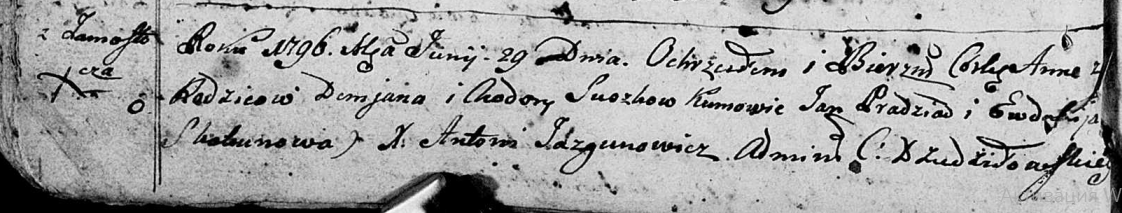 z Zamosto
Roku 1796. Msca Junij. 29 Dnia. Ochrzciłem i Bierzm Corkę Annę z
X cza
Rodzicow Demjana i Chodory Suszkow Kumowie Jan Pradziad i Ewdokija
Skakunowa) X. Antoni Jazgunowicz Admin C: Dziedziłowskiej